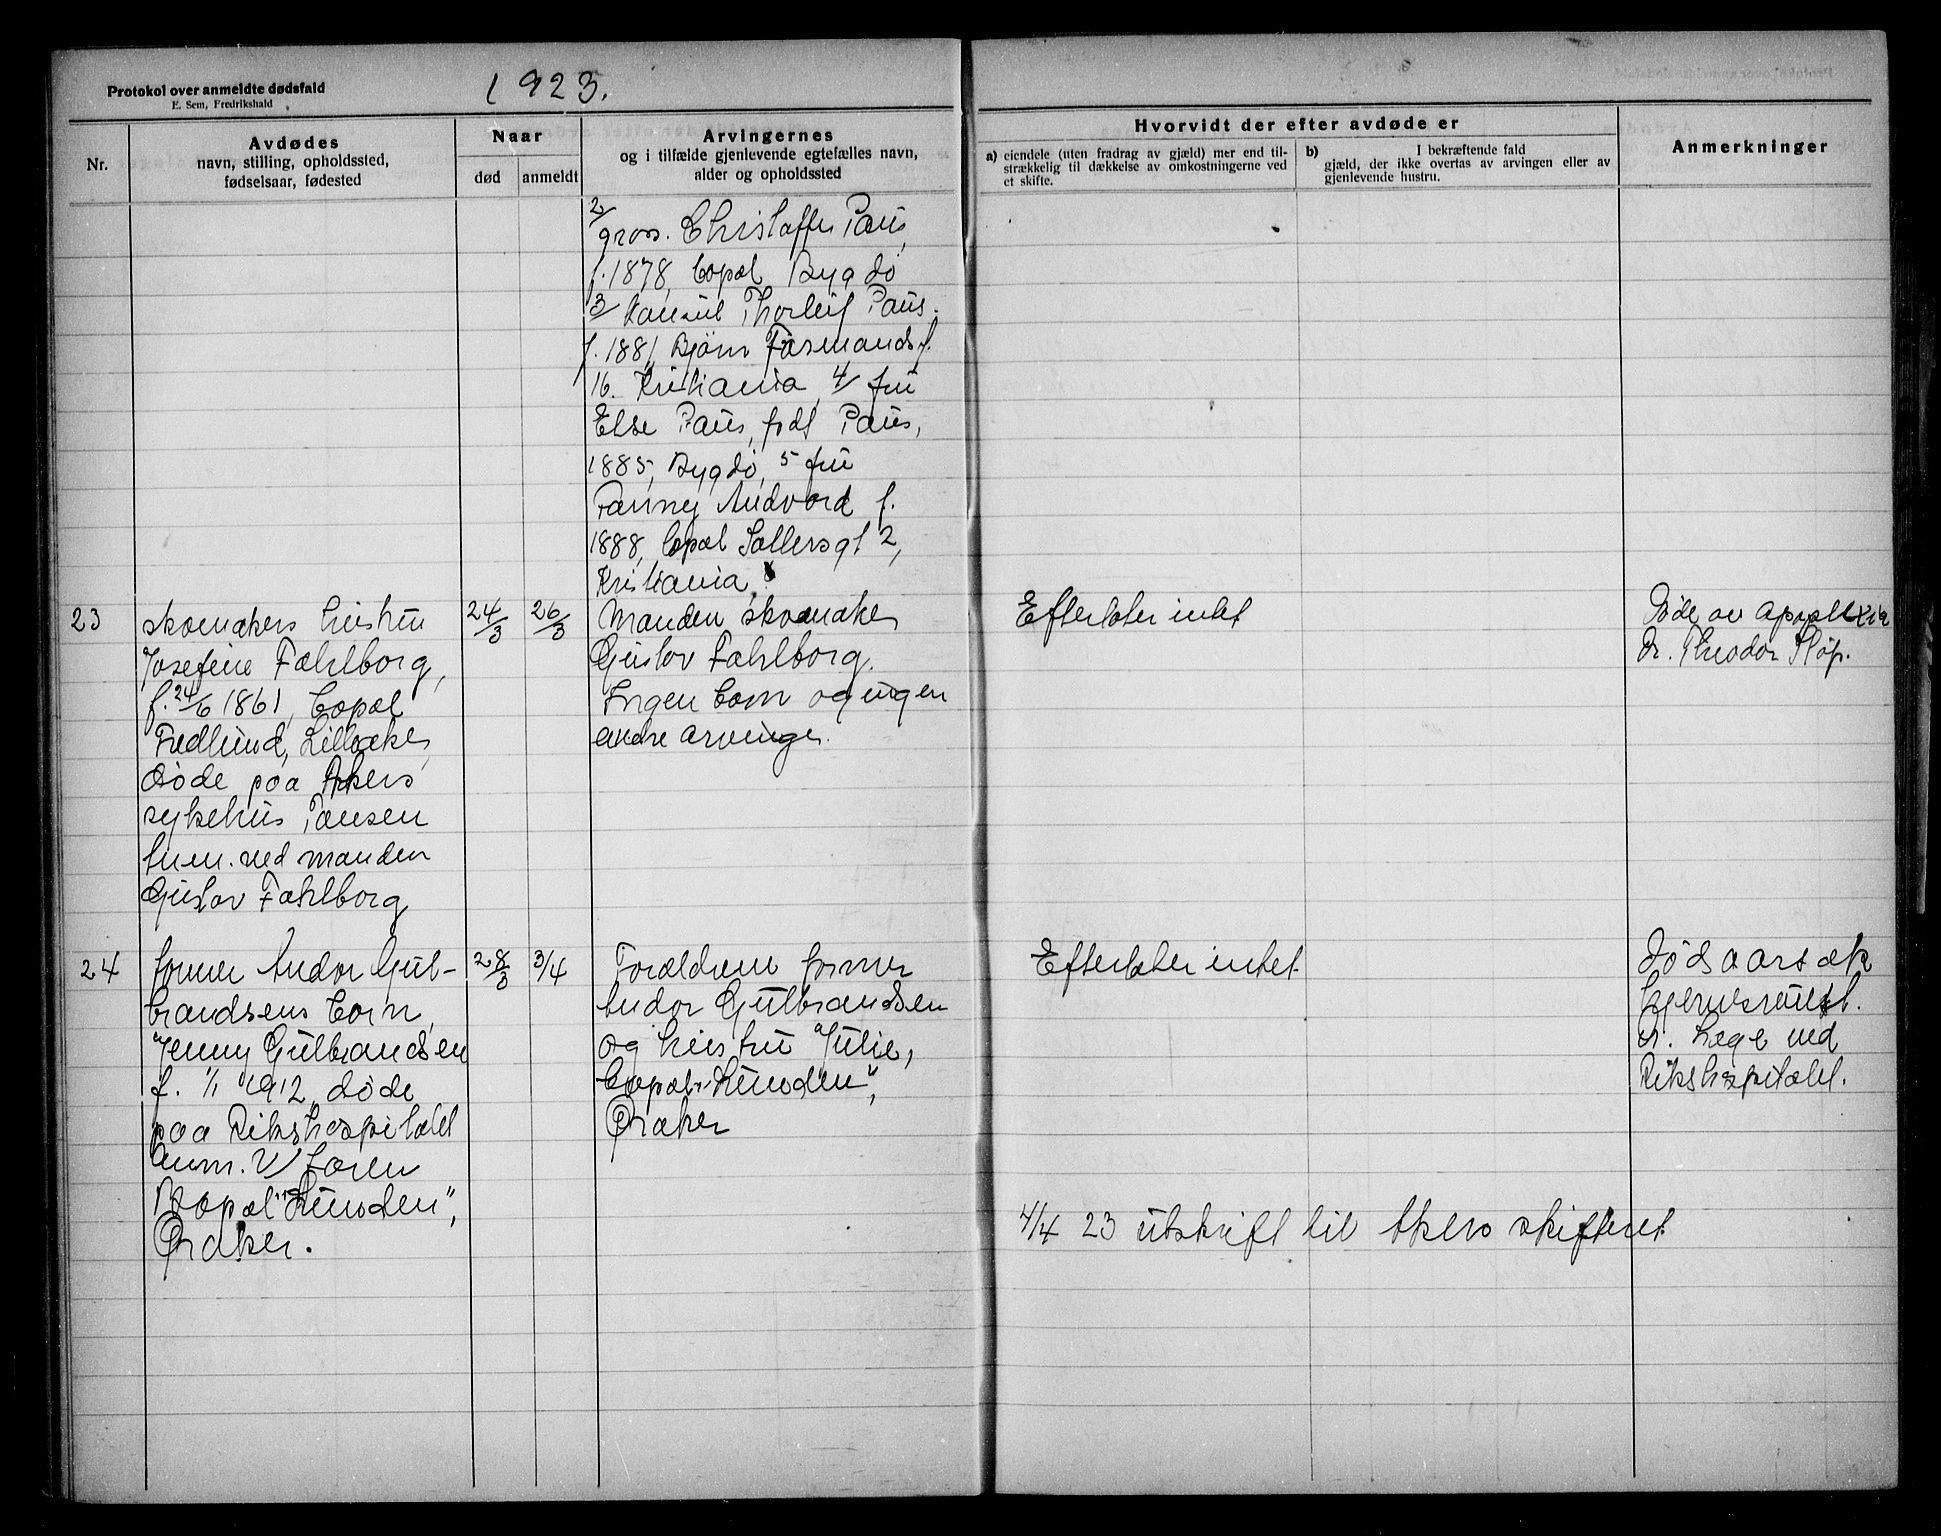 Protokol over anmeldte dødsfald
E. Sem, Fredrikshald
1923.
Nr.
Avdødes
navn, stilling, opholdssted,
fødselsaar, fødested
Naar
død
anmeldt
Arvingernes
og i tilfælde gjenlevende egtefælles navn,
alder og opholdssted
Hvorvidt der efter avdøde er
a) eiendele (uten fradrag av gjæld) mer end til-
strækkelig til dækkelse av omkostningerne ved
et skifte.
b) I bekræftende fald
gjæld, der ikke overtas av arvingen eller av
gjenlevende hustru.
Anmerkninger
2/
gros. Christoffer Paus,
f. 1878, bopæl Bygdø
3/ Konsul Thorleif Paus.
f. 1881, Bjørn Farmandsg.
16. Kristiania, 4/ fru
Else Paus, født Paus,
1885, Bygdø, 5 fru
Fanny Andvord f.
1888, bopæl Sollersgt 2,
Kristiania.
23
skomakers hustru
Josefine Fahlborg,
f. 24/6 1861, bopæl
Fredlund, Lilleaker,
døde paa Akers
sykehus
anm. ved manden
Gustav Fahlborg
24/3
26/3
Manden skomaker
Gustav Fahlborg.
Ingen barn og ingen
andre arvinger.
Efterlater intet
Døde av apoplexia
Dr. Theodor
24
former Andor Gul-
brandsens barn,
Jenny Gulbrandsen
f. 1/1 1912, døde
paa Rikshospitalet
Anm. v/ faren
Bopæl "Lunden",
Øraker.
28/3
3/4
Forældrene former
Andor Gulbrandsen
og hustru Julie,
bopæl "Lunden",
Øraker
Efterlater intet.
Dødsaarsak
Læge ved
Rikshospitalet.
4/4 23 utskrift til Akers skifteret.